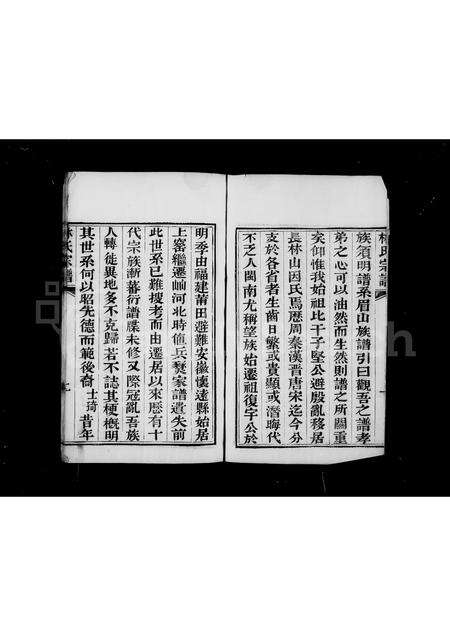 林氏宗譜
族須明譜系眉山族譜引曰觀吾之譜孝
弟之心可以油然而生然則譜之所關重
矣仰惟我始祖比干子堅公避殷亂移居
長林山因氏焉歷周秦漢晉唐宋迄今分
支於各省者生齒日繁或貴顯或潛晦代
不乏人閩南尤稱望族始遷祖復宇公於
明季由福建莆田避難安徽懷遠縣始居
上窰繼遷峋河北時值兵燹家譜遺失前
此世系已難搜考而由遷居以來歷有十
代宗族漸蕃衍譜牒未修又際寇亂吾族
人轉徙異地多不克歸若不誌其梗概明
其世系何以昭先德而範後裔士琦昔年
林氏宗譜